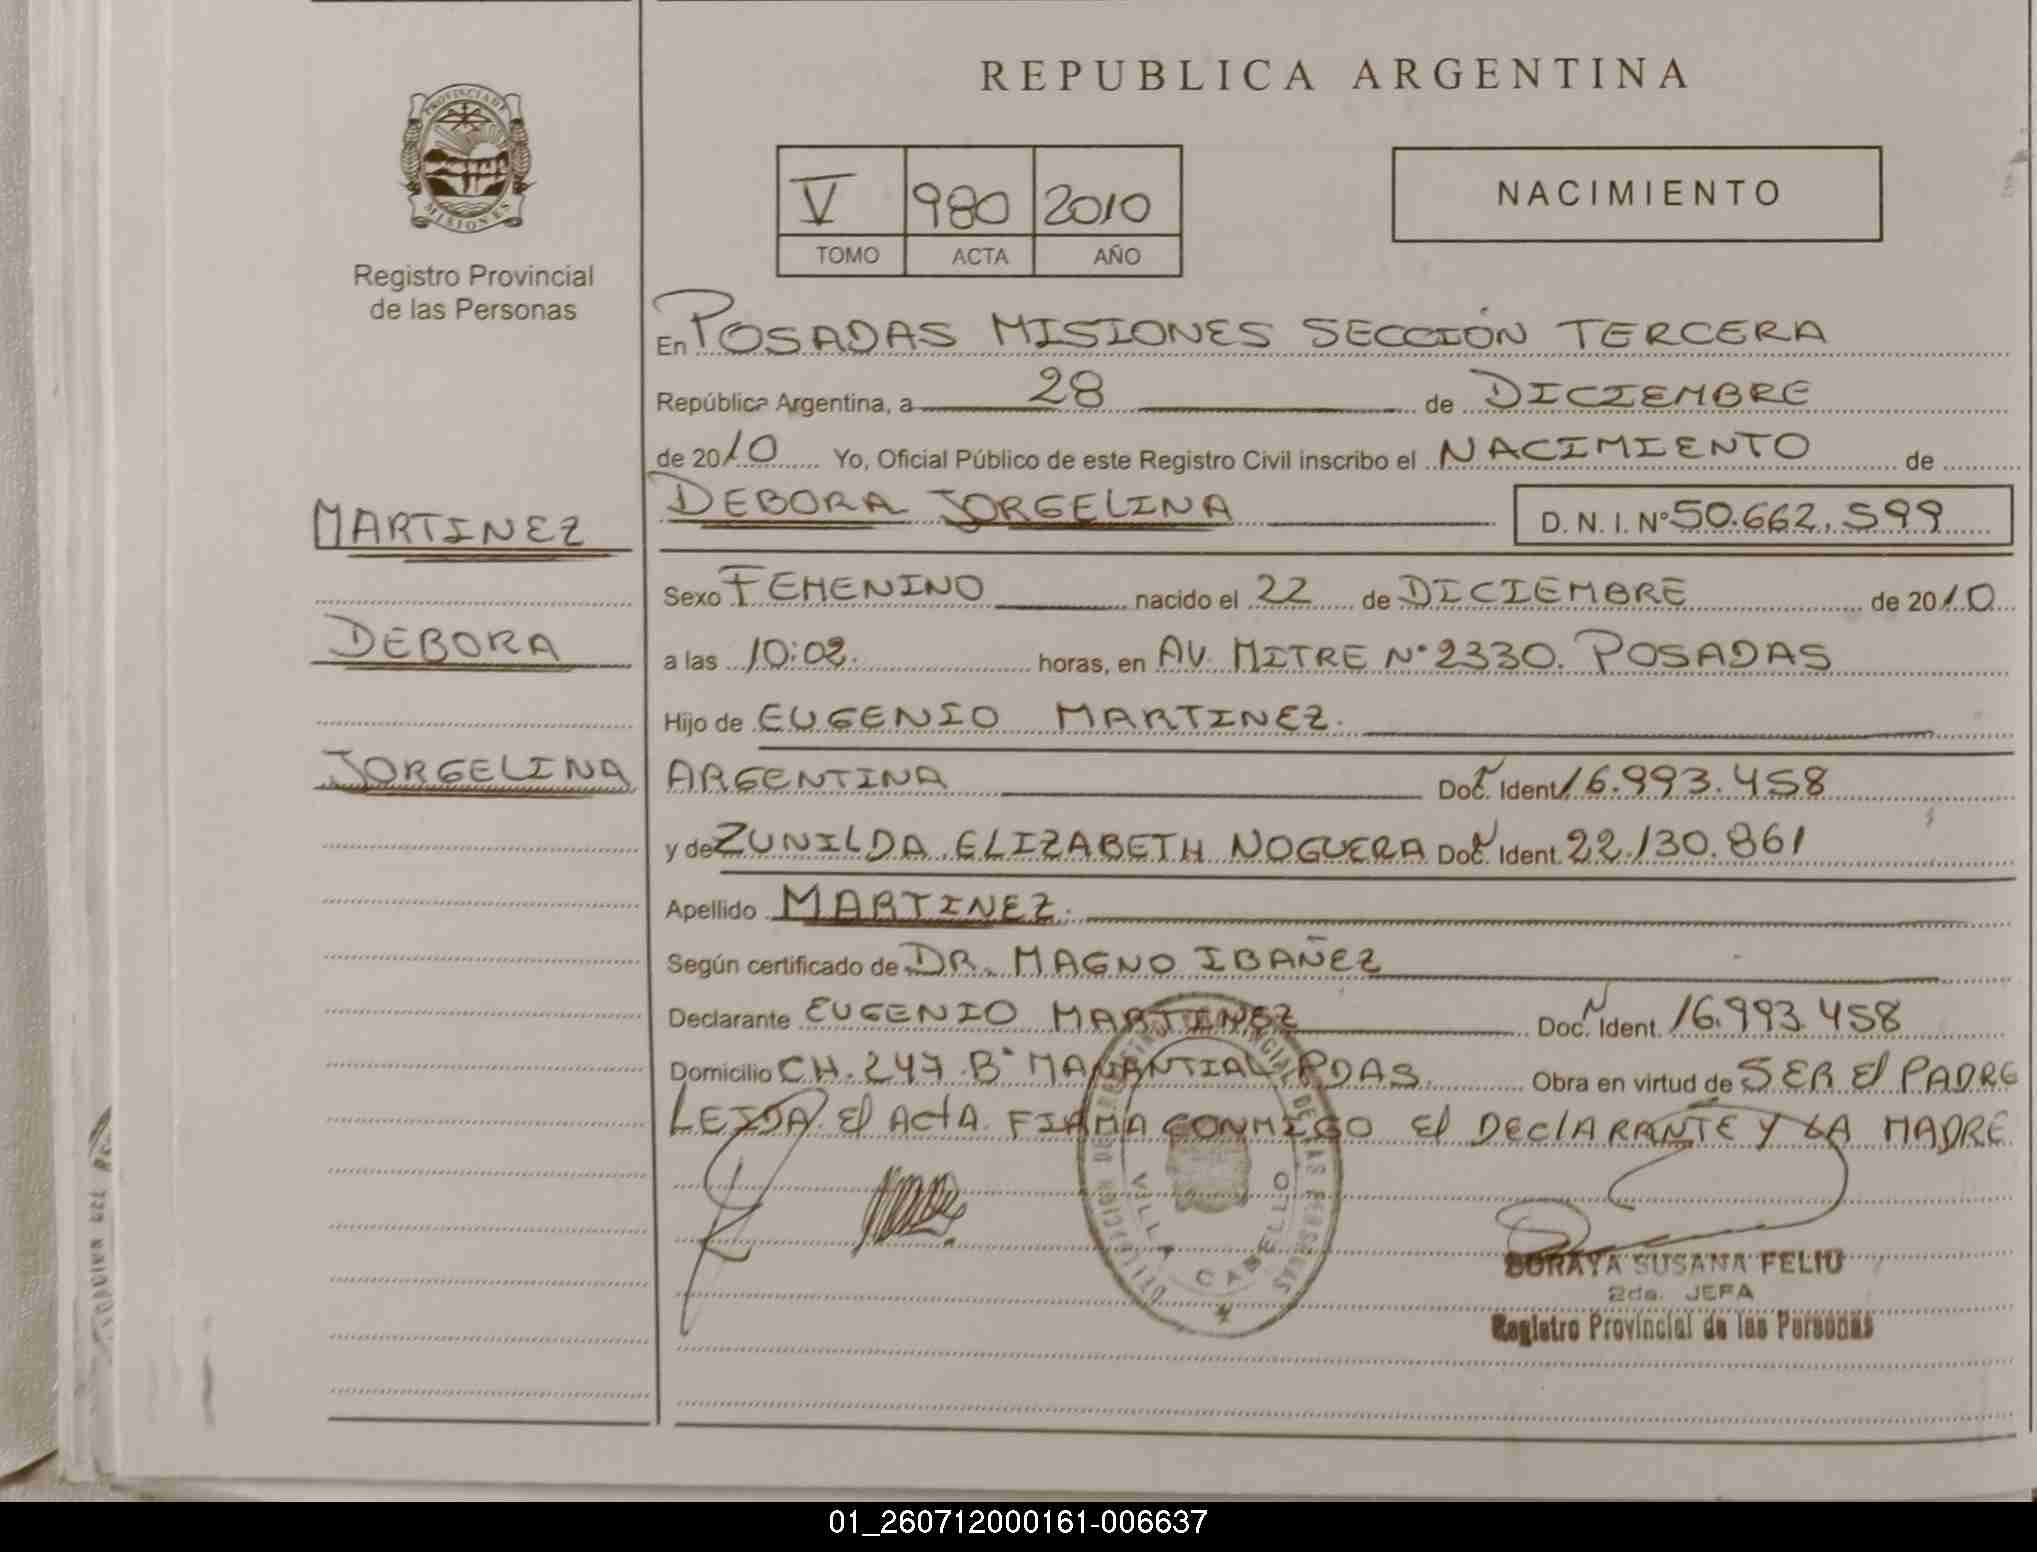 REPUBLICA ARGENTINA
PROVINCIA DE
MISIONES
Registro Provincial
de las Personas
V 980 2010
TOMO ACTA AÑO
NACIMIENTO
En POSADAS MISIONES SECCIÓN TERCERA
República Argentina, a 28 de DICIEMBRE
de 2010 Yo, Oficial Público de este Registro Civil inscribo el NACIMIENTO de
DEBORA JORGELINA D. N. I. Nº 50.662.599
MARTINEZ
DEBORA
JORGELINA
Sexo FEMENINO nacido el 22 de DICIEMBRE de 2010
a las 10:02. horas, en AV. MITRE Nº 2330. POSADAS
Hijo de EUGENIO MARTINEZ.
ARGENTINA Doc. Ident. 16.993.458
y de ZUNILDA ELIZABETH NOGUERA Doc. Ident. 22.130.861
Apellido MARTINEZ.
Según certificado de DR. MAGNO IBAÑEZ
Declarante EUGENIO MARTINEZ Doc. Ident. 16.993.458
Domicilio CH. 247 Bº MANANTIAL PDAS Obra en virtud de SER El PADRE
LEIDA El ActA FIRMA CONMIGO El DEClARANTE Y LA MADRE
VILLA CABELLO
SORAYA SUSANA FELIU
2da. JEFA
Registro Provincial de las Personas
01_260712000161-006637